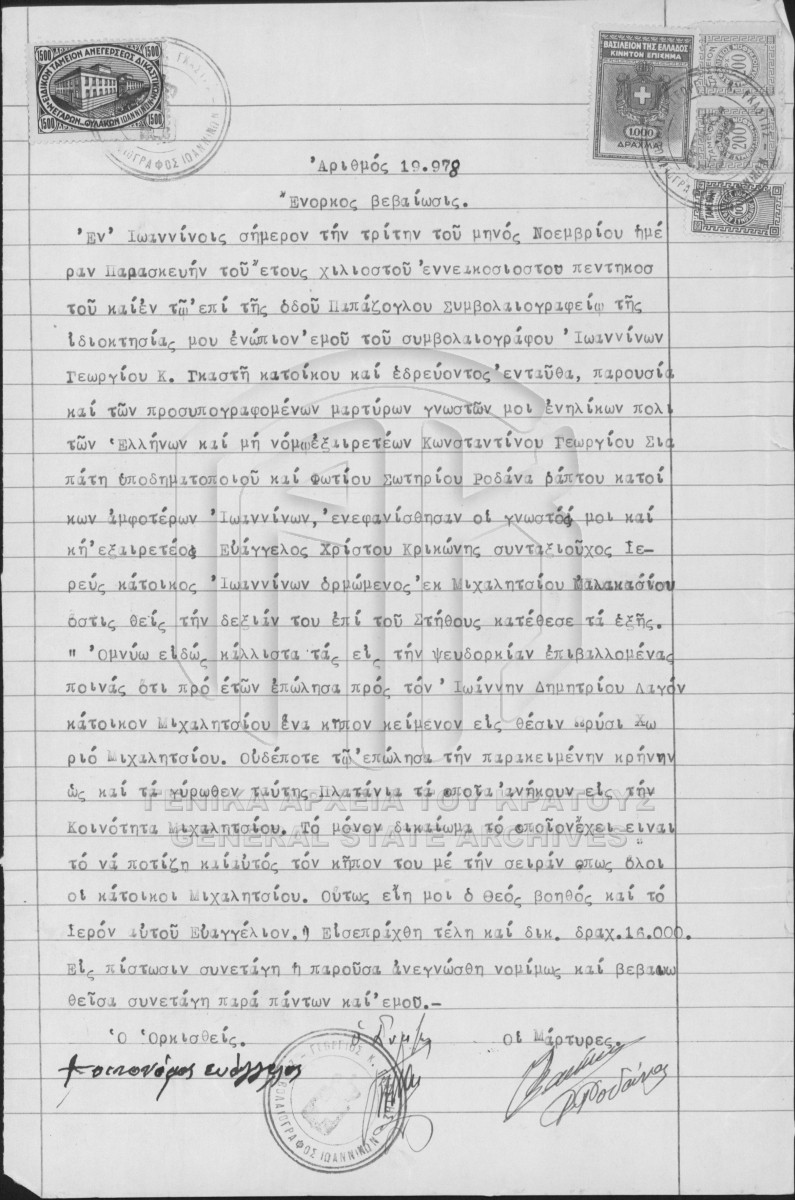 1500 ΕΙΔΙΚΟΝ ΤΑΜΕΙΟΝ ΑΝΕΓΕΡΣΕΩΣ ΔΙΚΑΣΤΙΚΩΝ 1500
1500 ΜΕΓΑΡΩΝ ΦΥΛΑΚΩΝ ΙΩΑΝΝΙΝΩΝ 1500
ΒΑΣΙΛΕΙΟΝ ΤΗΣ ΕΛΛΑΔΟΣ
ΚΙΝΗΤΟΝ ΕΠΙΣΗΜΑ
1.000
ΔΡΑΧΜΑΙ
200
200
Ἀριθμός 19.978
Ἔνορκος βεβαίωσις.
Ἐν Ἰωαννίνοις σήμερον τήν τρίτην τοῦ μηνός Νοεμβρίου ἡμέ
ραν Παρασκευήν τοῦ ἔτους χιλιοστοῦ ἐννεακοσιοστου πεντηκοσ
τοῦ καί ἐν τῷ ἐπί τῆς ὁδοῦ Παπάζογλου Συμβολαιογραφείῳ τῆς
ἰδιοκτησίας μου ἐνώπιον ἐμοῦ τοῦ συμβολαιογράφου Ἰωαννίνων
Γεωργίου Κ. Γκαστῆ κατοίκου καί ἑδρεύοντος ἐνταῦθα, παρουσία
καί τῶν προσυπογραφομένων μαρτύρων γνωστῶν μοι ἐνηλίκων πολι
τῶν Ἑλλήνων καί μή νόμῳ ἐξαιρετέων Κωνσταντίνου Γεωργίου Σια
πάτη ὑποδηματοποιοῦ καί Φωτίου Σωτηρίου Ροδάνα ῥάπτου κατοί
κων ἀμφοτέρων Ἰωαννίνων, ἐνεφανίσθησαν οἱ γνωστός μοι καί
κή ἐξαιρετέος Εὐάγγελος Χρίστου Κρικώνης συνταξιοῦχος Ιε-
ρεύς κάτοικος Ἰωαννίνων ὁρμώμενος ἐκ Μιχαλητσίου Μαλακασίου
ὅστις θείς τήν δεξιάν του ἐπί τοῦ Στήθους κατέθεσε τά ἑξῆς.
" Ὀμνύω εἰδώς κάλλιστα τάς εἰς τήν ψευδορκίαν ἐπιβαλλομένας
ποινάς ὅτι πρό ἐτῶν ἐπώλησα πρός τόν Ἰωάννην Δημητρίου Λαγόν
κάτοικον Μιχαλητσίου ἕνα κῆπον κείμενον εἰς θέσιν Βρύσι Χω
ριό Μιχαλητσίου. Οὐδέποτε τῷ ἐπώλησα τήν παρακειμένην κρήνην
ὡς καί τά γύρωθεν ταύτης Πλατάνια τά ὁποῖα ἀνήκουν εἰς τήν
Κοινότητα Μιχαλητσίου. Τό μόνον δικαίωμα τό ὁποῖον ἔχει εἶναι
τό νά ποτίζῃ καί αὐτός τόν κῆπον του μέ τήν σειράν ὅπως ὅλοι
οἱ κάτοικοι Μιχαλητσίου. Οὕτως εἴη μοι ὁ Θεός βοηθός καί τό
Ιερόν αὐτοῦ Εὐαγγέλιον." Εἰσεπράχθη τέλη καί δικ. δραχ.16.000.
Εἰς πίστωσιν συνετάγη ἡ παροῦσα ἀνεγνώσθη νομίμως καί βεβαιω
θεῖσα συνετάγη παρά πάντων καί ἐμοῦ.-
Ὁ Ὁρκισθείς. Ὁ Συμ/φος Οἱ Μάρτυρες.
οικονόμος ευάγγελος
ΓΕΩΡΓΙΟΣ Κ. ΓΚΑΣΤΗΣ ΣΥΜΒΟΛΑΙΟΓΡΑΦΟΣ ΙΩΑΝΝΙΝΩΝ
ΓΕΝΙΚΑ ΑΡΧΕΙΑ ΤΟΥ ΚΡΑΤΟΥΣ
GENERAL STATE ARCHIVES